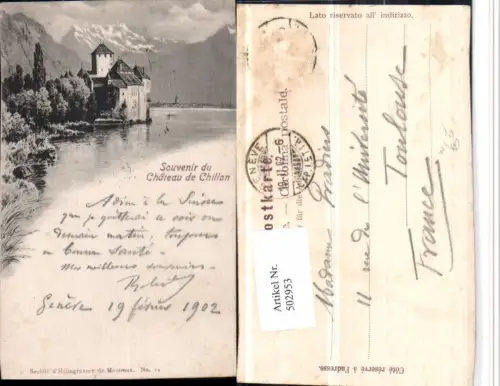 Souvenir du
Château de Chillon
Adieu à la Suisse
que je quitterai ce soir ou
demain matin, toujours
en bonne santé.
Mes meilleurs souvenirs.
Genève 19 février 1902
Société d'Héliogravure de Montreux. No.
Lato riservato all' indirizzo.
Postkarte.
postale.
GENÈVE
Artikel Nr.
502953
Madame
11 rue de l'Université
Toulouse
France
Côté réservé à l'adresse.